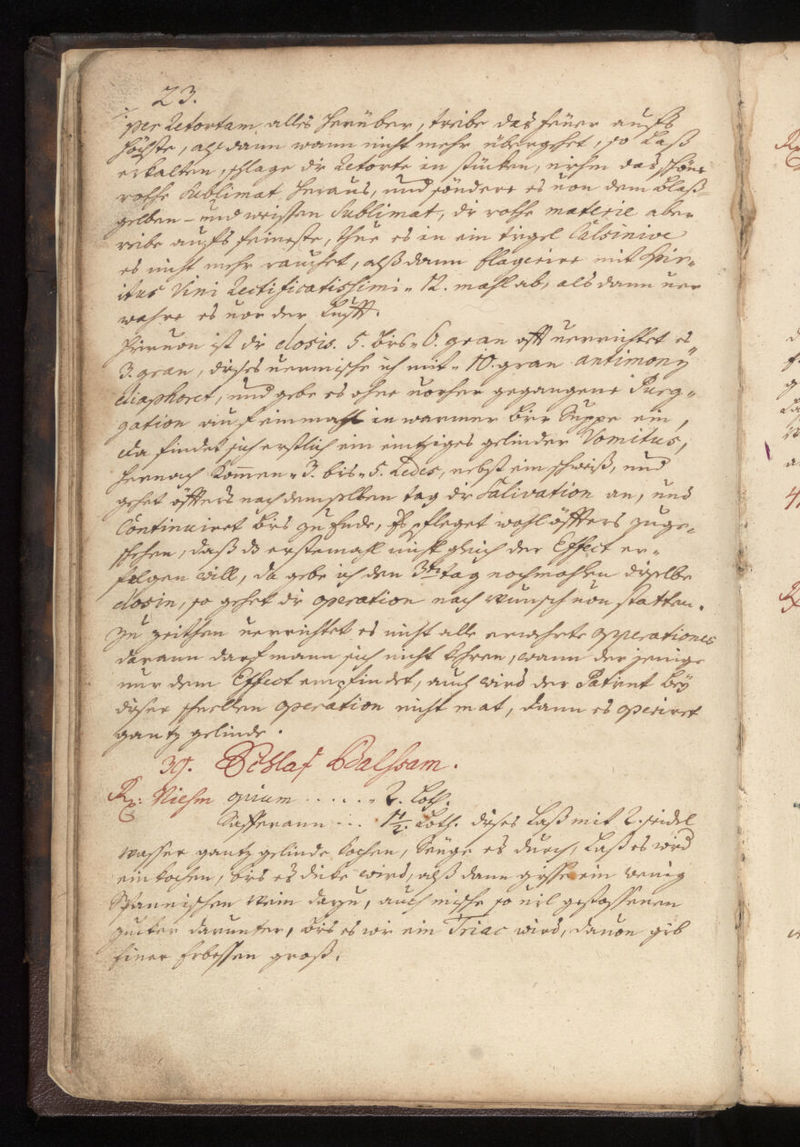 23.
per Retortam alles herüber, treibe das feüer aufs
höchste, alß dann wann nicht mehr übergehet, so laß
erkalten, schlage die Retorte in stücken, nehm das schöne
rothe Sublimat heraus, und söndere es von dem blaß
gelben - und weissen Sublimat, die rothe materie aber
reibe aufs feineste, thue es in ein tiegel Calcinire
es nicht mehr rauchet, alß dann flagerire mit Spir=
itus Vini Rectificatissimi = 12. mahl ab, als dann ver
wahre es vor der Lufft.
Hievon ist die dosis. 5. bis = 6. gran offt verrichtet es
3. gran, dieses vermische ich mit = 10. gran antimony
diaphoret, und gebe es ohne vorher gegangene Purg=
gation auf einmahl in warmer bier Suppe ein,
da findet sich erstlich ein eintziges gelinder Vomitus,
hernach kom̄en = 3. bis = 5. Sedes, nebst ein schweiß, und
gehet öffters nach demselben tag die Salivation an, und
Continuiret bis zu Ende, Es pfleget wohl öffters zuge=
schehen, daß das erstemahl nicht gleich der Effect er=
folgen will, da gebe ich den 3ten tag nochmahlen dieselbe
dosin, so gehet die operation nach wunsch von statten.
zu zeithen verrichtet es nicht alle erwehnte operationes
daran darf mann sich nicht kehren, wann der jenige
nur dem Effect empfindet, auch wird der Patient bey
dieser schnellen operation nicht mat, dann es operiret
gantz gelinde.
39. Schlaf Balsam.
Rx: Niehm opium . . . . . = 2. Loth.
Saffrann . . . 1/2. Loth. dieses laß mit 2. seidel
wasser gantz gelinde kochen, Seüge es durch, laß es wird
einkochen, bis es dicke wird, alß dann giesse ein wenig
Spannischen wein dazu, auch mische so viel gestossenen
zucker darunter, bis es wie ein Triac wird, davon gib
einer Erbessen groß.